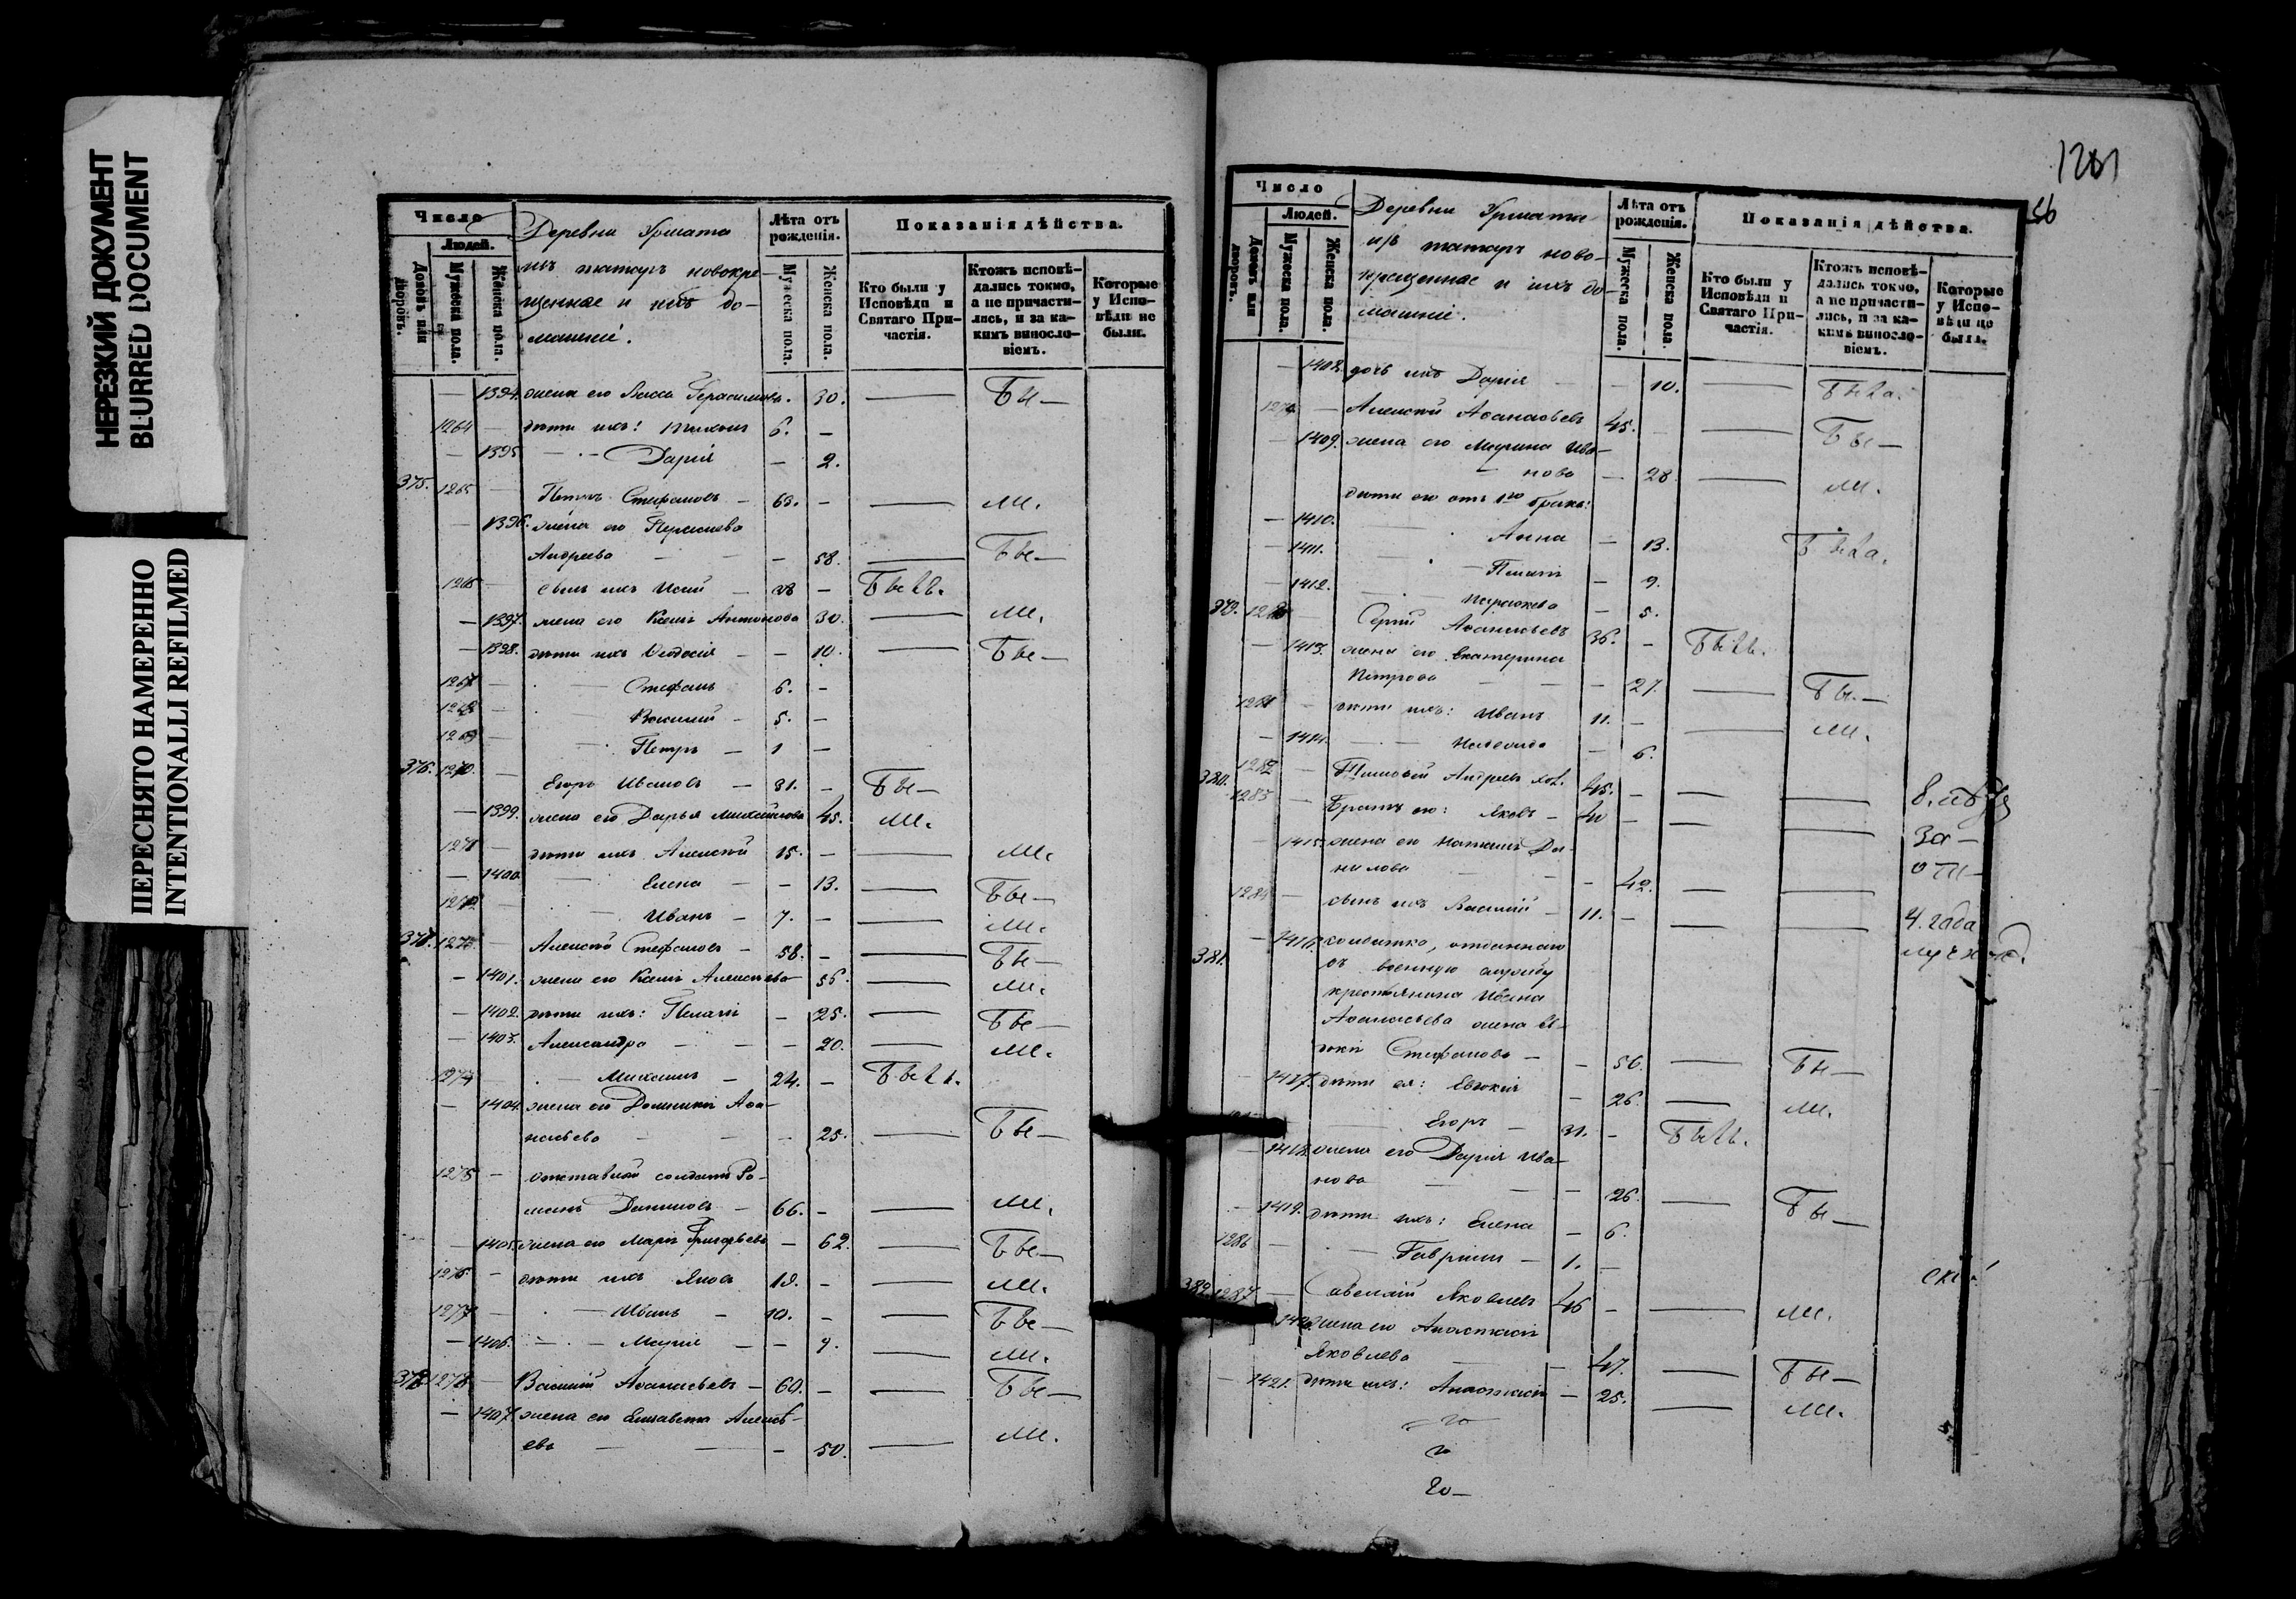 НЕРЕЗКИЙ ДОКУМЕНТ
BLURRED DOCUMENT
ПЕРЕСНЯТО НАМЕРЕННО
INTENTIONALLI REFILMED
Число
Людей.
Домовъ или дворовъ.
Мужеска пола.
Женска пола.
Деревни Урмата
изъ татаръ новокре-
щенные и ихъ до-
машніе.
Лѣта отъ рожденія.
Мужеска пола.
Женска пола.
Показанія дѣйства.
Кто были у Исповѣди и Святаго При-частія.
Ктожъ исповѣ-дались токмо, а не причасти-лись, и за ка-кимъ винословіемъ.
Которые у Испо-вѣди не были.
1394. жена его Васса Герасимова. 30. — Бы—
1264 — дѣти ихъ: 6. —
— 1395 — Дарія — 2.
375. 1265 — Петръ Стефановъ — 63. — — ли.
— 1396. жена его Параскева
Андреева — — 58. — Бы—
1266 — сынъ ихъ — Былъ.
— 1397. жена его Ксенія Антонова 30. — ли.
— 1398. дѣти ихъ Ѳеодосія — — 10. — Бы—
1267 — Стефанъ 6. —
1268 — Василій — 5. —
1269 — Петръ — 1 —
376. 1270. — Егоръ Ивановъ — 31. — Бы—
— 1399. жена его Дарья Михайлова 45. ли.
1271 — дѣти ихъ Алексѣй 15. — — ли.
— 1400 — Елена — — 13. — Бы—
1272 — Иванъ — 7. — — ли.
377. 1273 — Алексѣй Стефановъ — 58. — — Бы—
— 1401. жена его Ксенія Алексѣева 56. — ли.
— 1402. дѣти ихъ: Пелагія — 25. — Бы—
— 1403. Александра — — — 20. — ли.
1274 — Михаилъ — 24. — Былъ.
— 1404. жена его Домникія Аѳа-
насьева — — — 25. — Бы—
1275 — отставной солдатъ Ро-
манъ Даниловъ — 66. — — ли.
— 1405. жена его Марія Григорьева — 62. — Бы—
1276. — дѣти ихъ Яковъ 18. — — ли.
1277 — Иванъ — 10. — — Бы—
— 1406. — Марія — — 9. — ли.
378 1278 — Василій Аѳанасьевъ — 60. — — Бы—
— 1407. жена его Елисавета Алексѣ-
ева — — — 50. — ли.
1281
56
Число
Людей.
Домовъ или дворовъ.
Мужеска пола.
Женска пола.
Деревни Урмата
изъ татаръ ново-
крещенные и ихъ до-
машніе.
Лѣта отъ рожденія.
Мужеска пола.
Женска пола.
Показанія дѣйства.
Кто были у Исповѣди и Святаго При-частія.
Ктожъ исповѣ-дались токмо, а не причасти-лись, и за ка-кимъ винословіемъ.
Которые у Испо-вѣди не были.
— 1408. дочь ихъ Дарія — 10. — Была.
1279. — Алексѣй Аѳанасьевъ 45. — — Бы—
— 1409. жена его Марина Ива-
нова — 28. — ли.
дѣти его отъ 1го брака:
— 1410. Анна — 13. Была.
— 1411. — Пелагія — 9.
— 1412. — Параскева — 5.
379. 1280 Сергій Аѳанасьевъ 36. — Былъ.
— 1413. жена его Екатерина
Петрова — — 27. — Бы.—
1281 — дѣти ихъ: Иванъ 11. — — ли.
— 1414. — — 6.
380. 1282 — Тимоѳей Андреевъ хол. 45. — — —
1283 — Братъ его: Яковъ — 40 — — — за—
— 1415. жена его Наталія Да-
нилова — — 42. — — отл—
1284 — сынъ ихъ Василій — 11. — — — 4. года
381. — 1416. солдатка, отданнаго
въ военную службу
крестьянина Ивана
Аѳанасьева жена Ев-
докія Стефанова — — 56. — Бы—
1417. дѣти ея: Евдокія — 26. — ли.
— Егоръ — 31. — Былъ.
— 1418. жена его Дарія Ива-
нова — — — 26. — Бы—
— 1419. дѣти ихъ: Елена — 6.
1286 — Гавріилъ — 1. —
382. 1287 — Савелій Яковлевъ 46 — — ли.
1420. жена его Анастасія
Яковлева — — 47. — Бы—
— 1421. дѣти ихъ: Анастасія — 25. — ли.